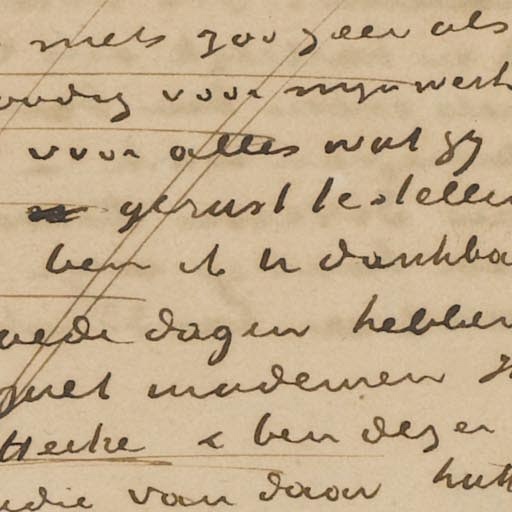 niets zoo zeer als
noodig voor mijn werk
voor alles wat gy
gerust te stellen
ben ik U dankba
goede dagen hebben
met mademen
Heeke & ben dezer
die van daar hutt